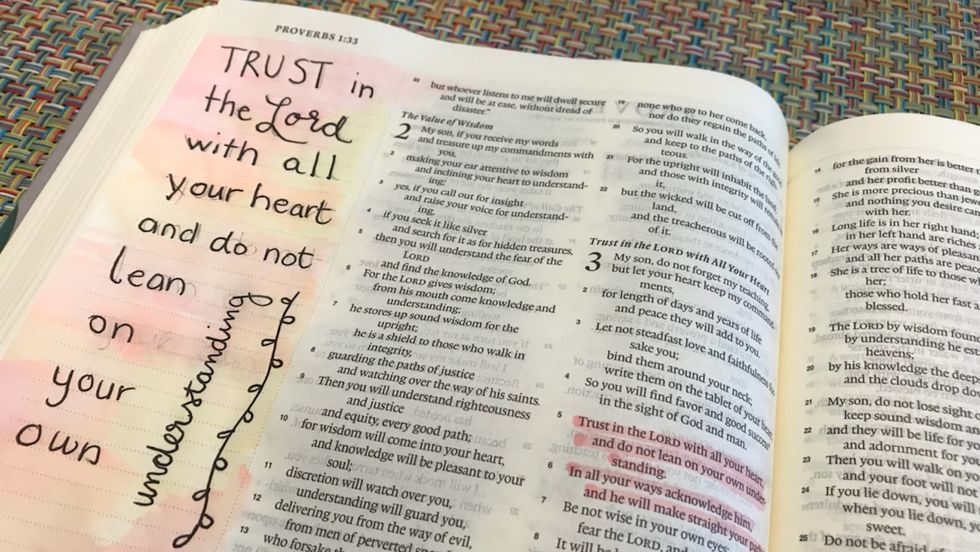 PROVERBS 1:33
TRUST in
the Lord
with all
your heart
and do not
lean
on
your
own
understanding
33 but whoever listens to me will dwell secure
and will be at ease, without dread of
disaster."
The Value of Wisdom
2 My son, if you receive my words
and treasure up my commandments with
you,
2 making your ear attentive to wisdom
and inclining your heart to understand-
ing;
3 yes, if you call out for insight
and raise your voice for understand-
ing,
4 if you seek it like silver
and search for it as for hidden treasures,
5 then you will understand the fear of the
LORD
and find the knowledge of God.
6 For the LORD gives wisdom;
from his mouth come knowledge and
understanding;
7 he stores up sound wisdom for the
upright;
he is a shield to those who walk in
integrity,
8 guarding the paths of justice
and watching over the way of his saints.
9 Then you will understand righteousness
and justice
and equity, every good path;
10 for wisdom will come into your heart,
and knowledge will be pleasant to your
soul;
11 discretion will watch over you,
understanding will guard you,
12 delivering you from the way of evil,
from men of perverted speech,
13 who forsake the
19 none who go to her come back,
nor do they regain the paths of
20 So you will walk in the way of the
and keep to the paths of the
teous.
21 For the upright will inhabit the land,
and those with integrity will
it,
22 but the wicked will be cut off from the
land,
and the treacherous will be
of it.
Trust in the LORD with All Your Heart
3 My son, do not forget my teaching,
but let your heart keep my command-
ments,
2 for length of days and years of life
and peace they will add to you.
3 Let not steadfast love and faithfulness
sake you;
bind them around your neck;
write them on the tablet of your heart.
4 So you will find favor and good success
in the sight of God and man.
5 Trust in the LORD with all your heart,
and do not lean on your own under-
standing.
6 In all your ways acknowledge him,
and he will make straight your
7 Be not wise in your own eyes;
fear the LORD, and
8 It will be
14 for the gain from her is better
from silver
and her profit better than
15 She is more precious than
and nothing you desire
with her.
16 Long life is in her right hand;
in her left hand are riches
17 Her ways are ways of
and all her paths are
18 She is a tree of life to those
her;
those who hold her fast
blessed.
19 The LORD by wisdom
by understanding he
heavens;
20 by his knowledge the
and the clouds drop
21 My son, do not lose
keep sound wisdom
22 and they will be life for
and adornment for
23 Then you will walk on
and your foot will
24 If you lie down, you will
when you lie down,
sweet.
25 Do not be afraid of